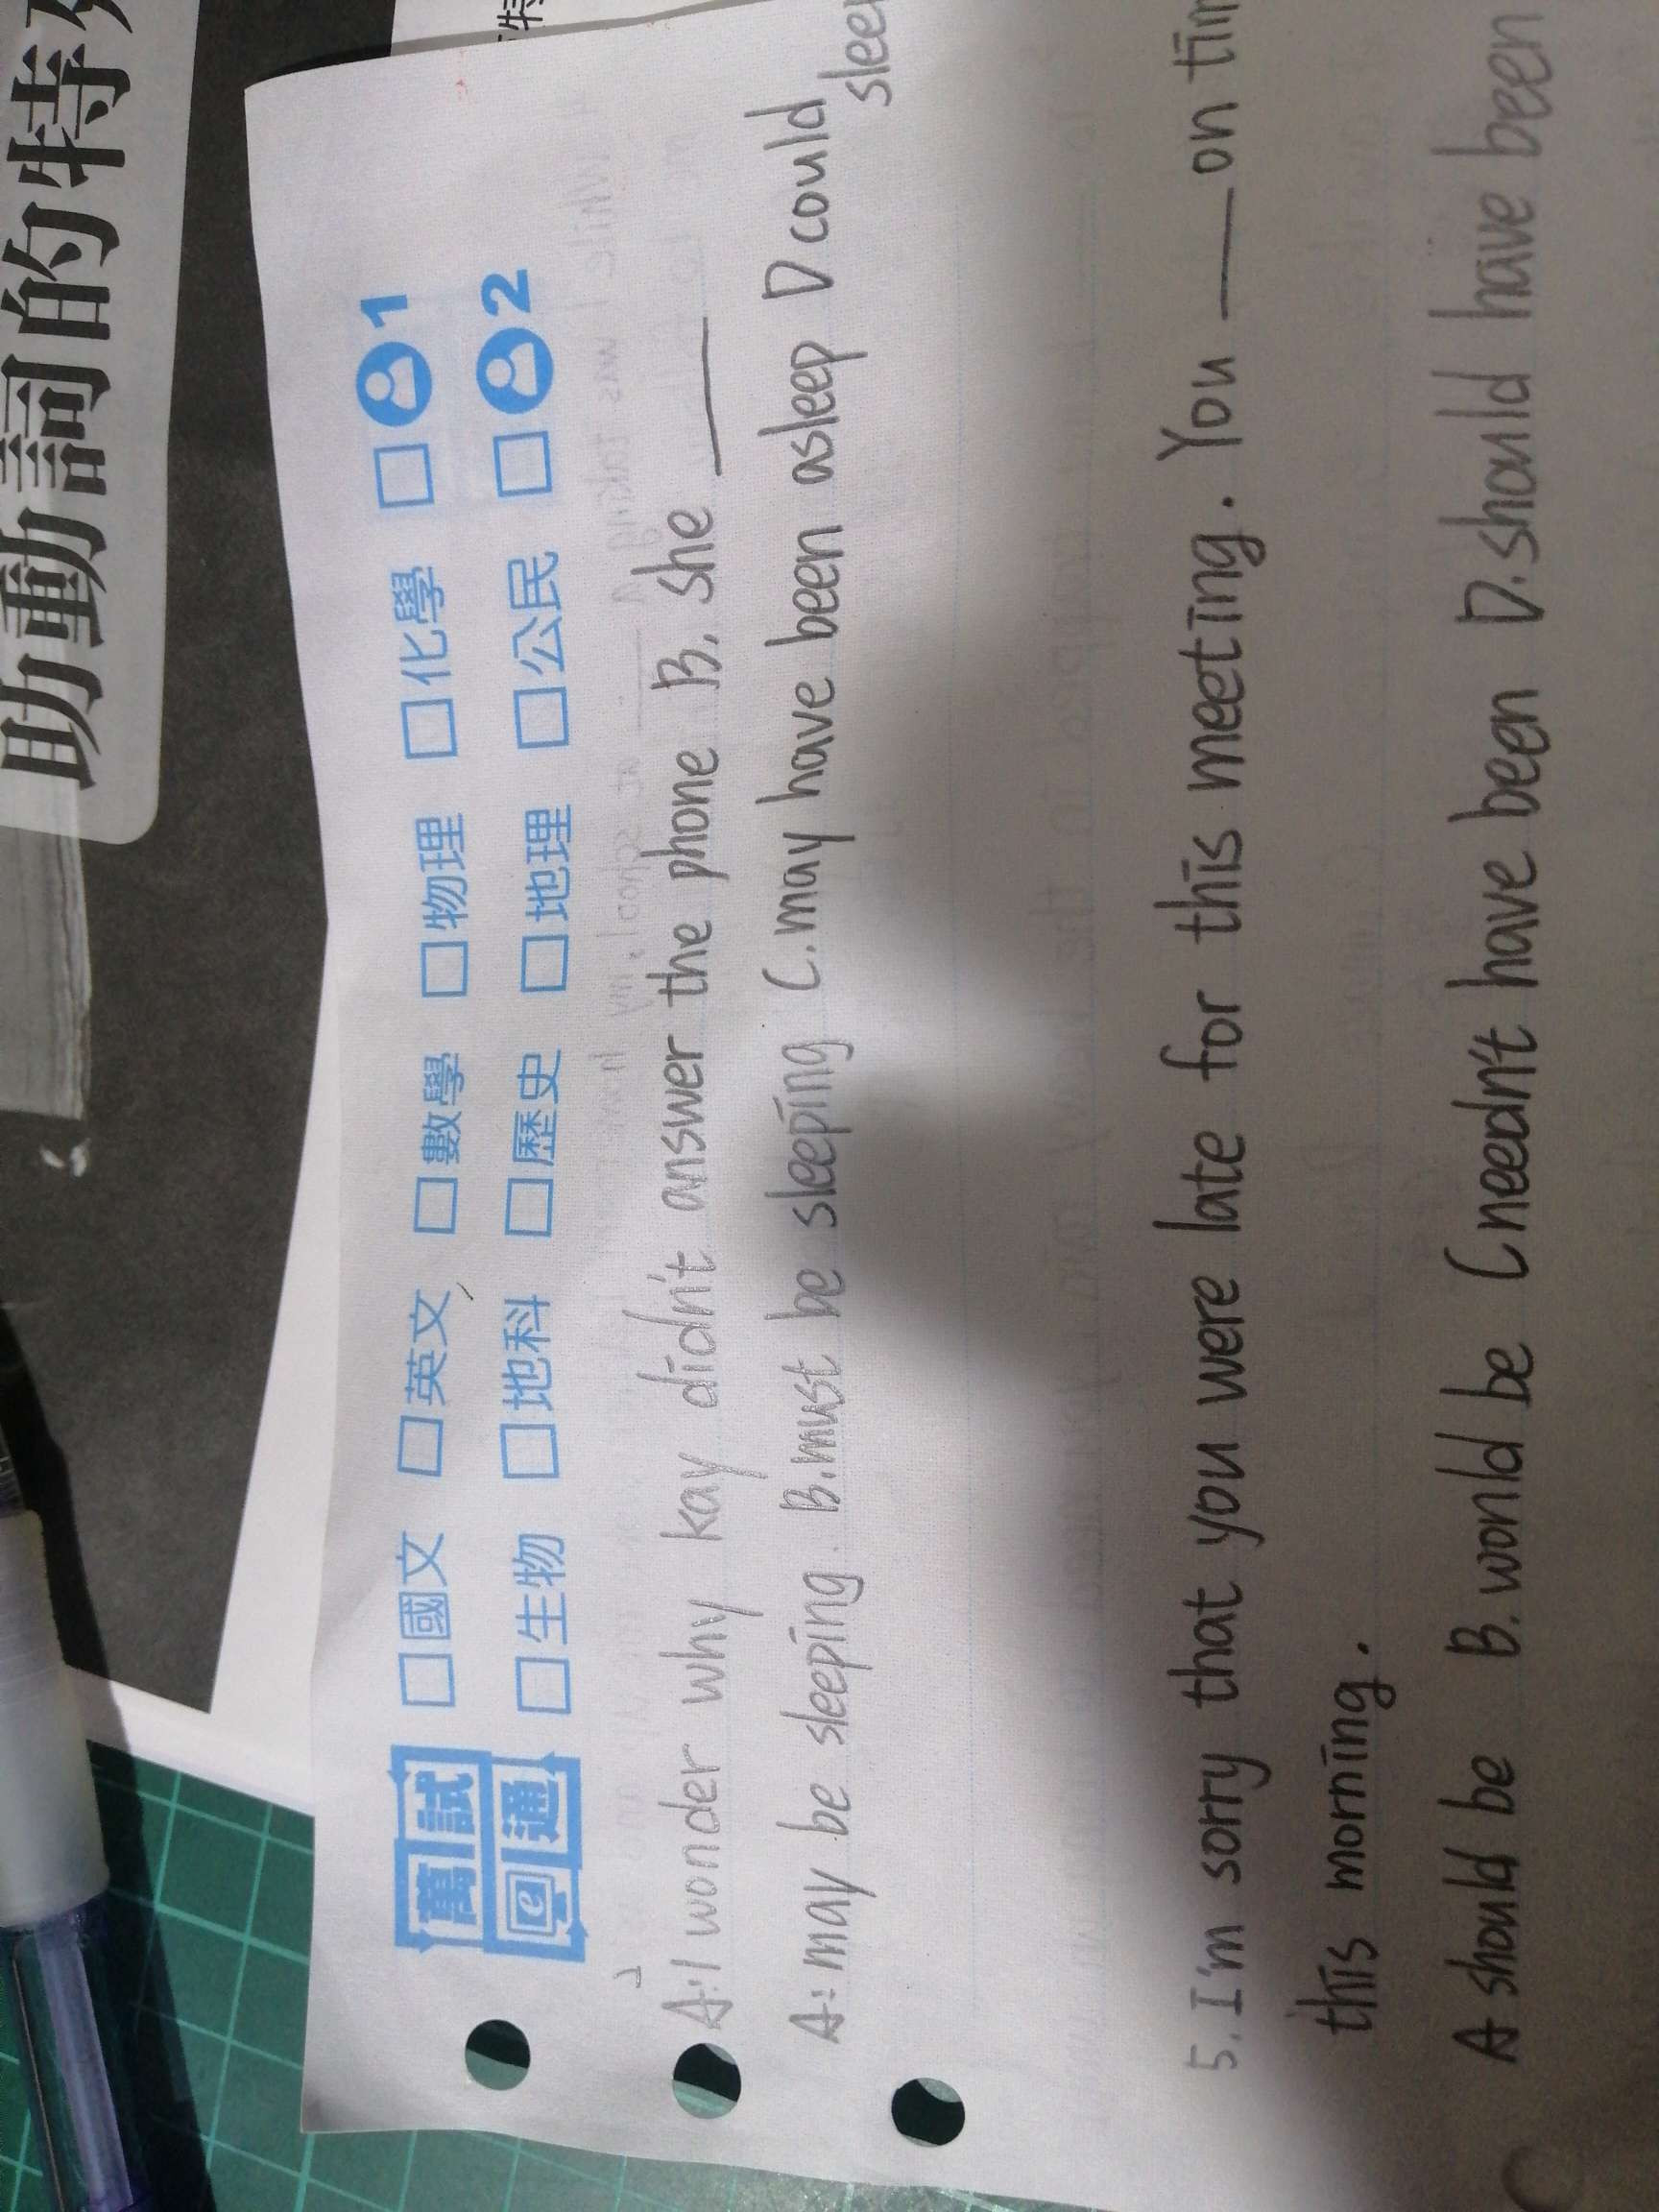 助動詞的特
萬試e通 □國文 □英文 □數學 □物理 □化學 □ 1
□生物 □地科 □歷史 □地理 □公民 □ 2
A:I wonder why kay didn't answer the phone B, she ___
A: may be sleeping. B.must be sleeping C.may have been asleep D could
5. I'm sorry that you were late for this meeting. You ___ on
this morning.
A should be B. would be C needn't have been D. should have been